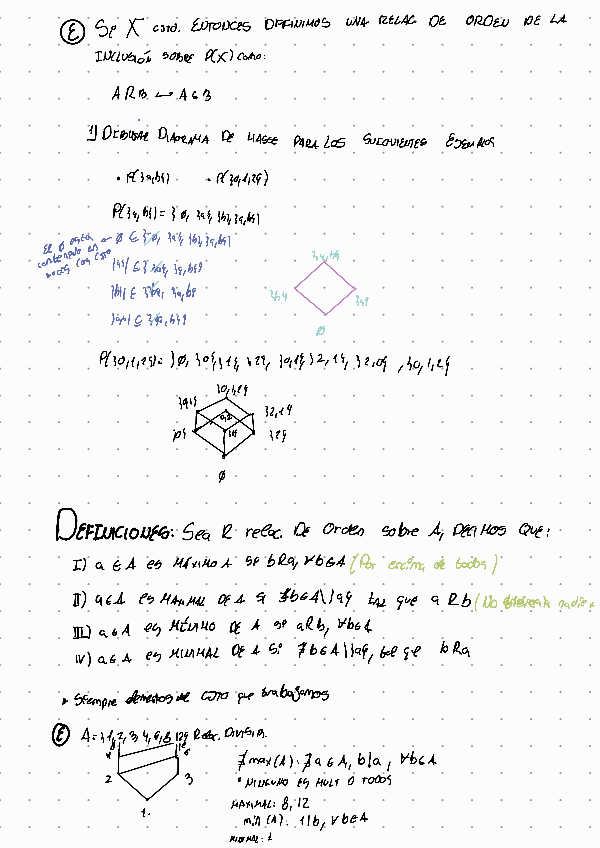 E) Se X conj. ENTONCES DEFINIMOS UNA RELAC DE ORDEN DE LA
INCLUSIÓN SOBRE P(X) como:
A R B ↔ A ⊆ B
1) DIBUJAR DIAGRAMA DE HASSE PARA LOS SIGUIENTES EJEMPLOS
• P({a,b}) • P({0,1,2})
P({a,b}) = {∅, {a}, {b}, {a,b}}
El ∅ está contenido en todos los conj
∅ ⊆ {∅, {a}, {b}, {a,b}}
{a} ⊆ {a}, {a,b}
{b} ⊆ {b}, {a,b}
{a,b} ⊆ {a,b}
{a,b}
{b} {a}
∅
P({0,1,2}) = {∅, {0}, {1}, {2}, {0,1}, {2,1}, {2,0}, {0,1,2}
{0,1,2}
{0,1} 0,2 {2,1}
{0} {1} {2}
∅
DEFINICIONES: Sea R relac. De orden sobre A, DECIMOS QUE:
I) a ∈ A es MÁXIMO A se bRa, ∀b∈A (Por encima de todos)
II) a∈A es MAXIMAL DE A si ∄b∈A\{a} tal que a R b (No nadie
III) a∈A es MÍNIMO DE A se aRb, ∀b∈A
IV) a∈A es MINIMAL DE A si ∄b∈A\{a}, tal qe bRa
* Siempre que trabajamos
E) A = {1,2,3,4,6,8,12} Relac. Divisib.
8 12
4 6
2 3
1.
∄max(A): ∄a∈A, b|a, ∀b∈A
* NINGUNO ES MULT D TODOS
MAXIMAL: 8, 12
min(A): 1|b, ∀b∈A
MINIMAL: 1